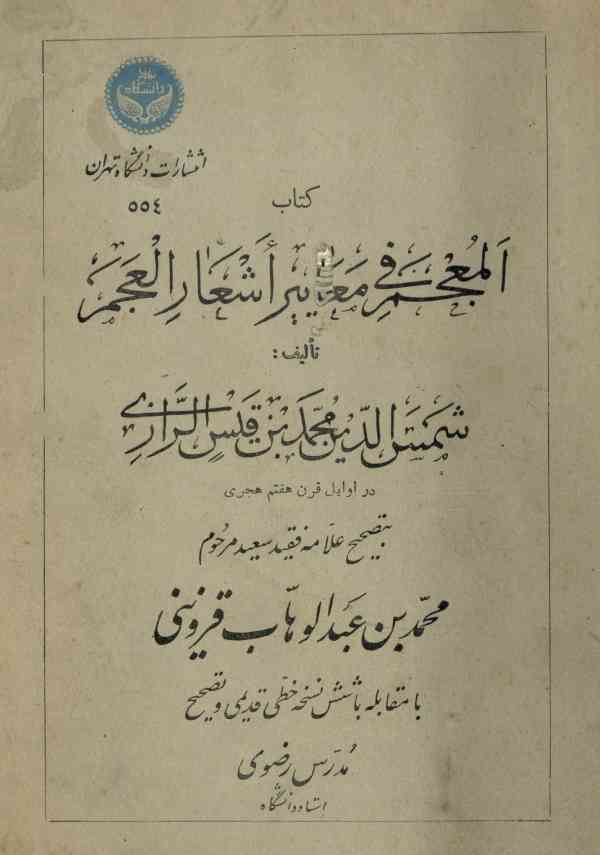 انتشارات دانشگاه تهران
٥٥٤
کتاب
اَلمُعْجَم فی مَعَاییرِ أَشْعَارِ الْعَجَم
تألیف :
شَمسُ الدّین مُحَمَّد بْن قَیسِ الرَّازی
در اوایل قرن هفتم هجری
بتصحیح علّامه فقید سعید مرحُوم
محمّد بن عَبدالوهّاب قزوینی
با مقابله با شش نسخهٔ خطی قدیمی و تصحیح
مُدرّس رضوی
استاد دانشگاه